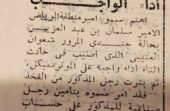 أداء الواجب
اهتم سمو امير منطقة الرياض
الامير سلمان بن عبد العزيز
بحالة جندى المرور شعوان
العتيبى الذى اصيب فى حادث
اثناء اداء واجبه على الموتسيكل
ثم بترت رجل المذكور من الفخذ
فقد امر سموه بتامين رجل
للمذكور على حساب